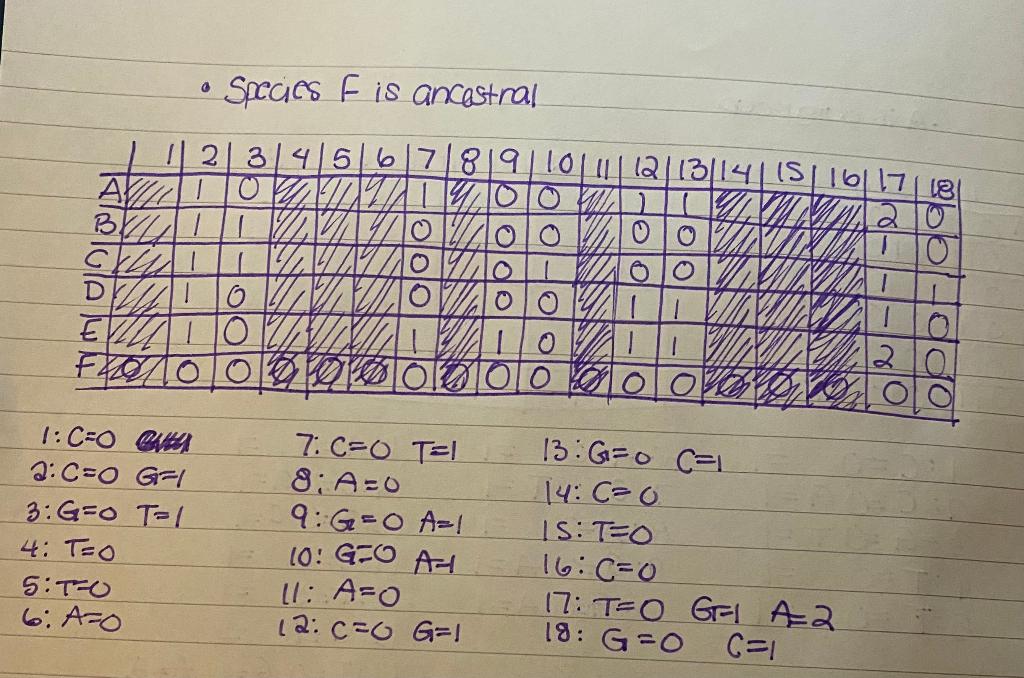 • Species F is ancestral
1 2 3 4 5 6 7 8 9 10 11 12 13 14 15 16 17 18
A 1 0 1 0 0 1 1 2 0
B 1 1 0 0 0 0 0 1 0
C 1 1 0 0 1 0 0 1 1
D 1 0 0 0 0 1 1 1 0
E 1 0 1 1 0 1 1 2 0
F 0 0 0 0 0 0 0 0 0 0 0 0 0 0 0 0 0 0
1: C=0
2: C=0 G=1
3: G=0 T=1
4: T=0
5: T=0
6: A=0
7: C=0 T=1
8: A=0
9: G=0 A=1
10: G=0 A=1
11: A=0
12: C=0 G=1
13: G=0 C=1
14: C=0
15: T=0
16: C=0
17: T=0 G=1 A=2
18: G=0 C=1